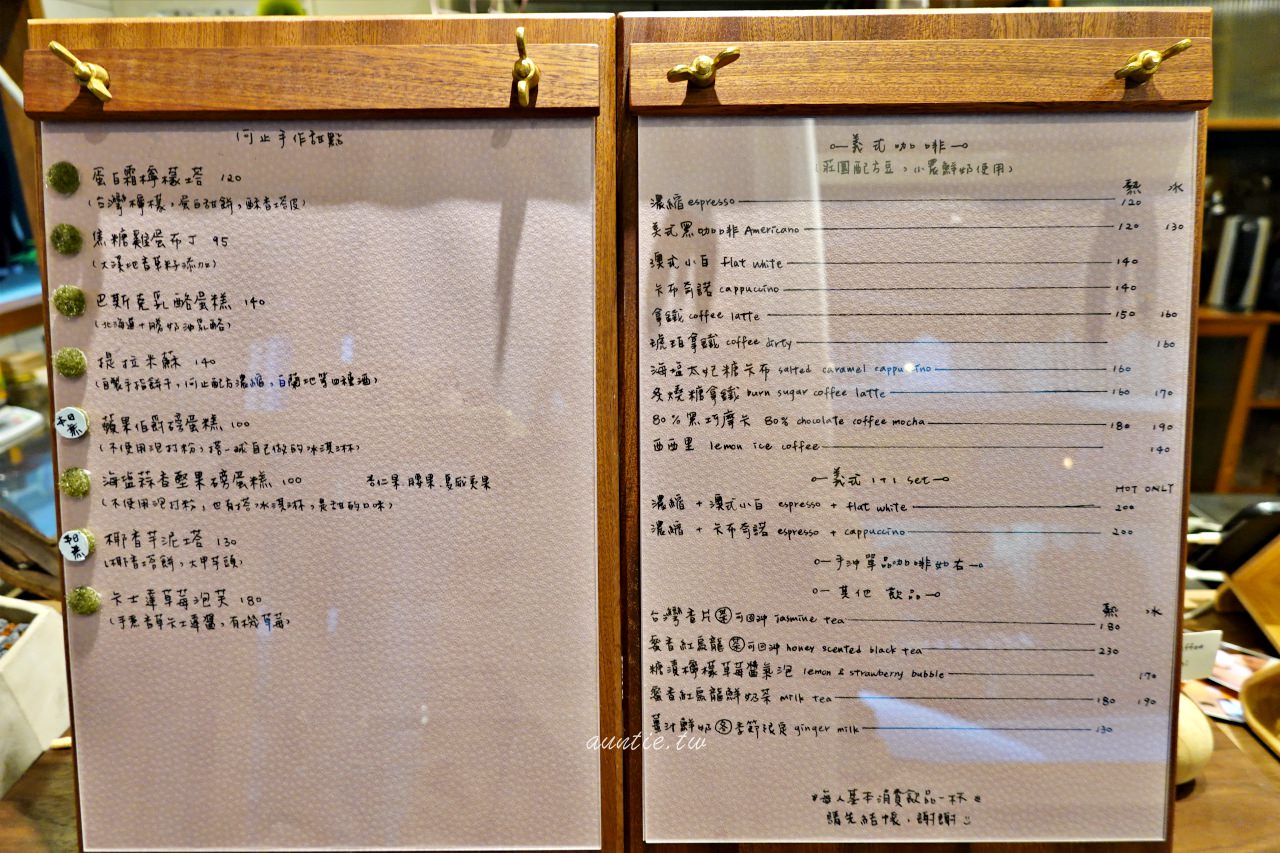 何止手作甜點
蛋白霜檸檬塔 120
(台灣檸檬,蛋白甜餅,酥香塔皮)
焦糖雞蛋布丁 95
(大溪地香草籽添加)
巴斯克乳酪蛋糕 140
(北海道十勝奶油乳酪)
提拉米蘇 140
(自製手指餅干,何止配方濃縮,白蘭地等四種酒)
平日煮
蘋果伯爵磅蛋糕 100
(不使用泡打粉,搭一球自己做的冰淇淋)
海塩蒜香堅果磅蛋糕 100 杏仁果.腰果.夏威夷果
(不使用泡打粉,也有搭冰淇淋,是甜的口味)
平日煮
椰香芋泥塔 130
(椰香塔餅,大甲芋頭)
卡士達草莓泡芙 180
(手煮香草卡士達醬,有機草莓)
義式咖啡
(莊園配方豆,小農鮮奶使用)
熱 冰
濃縮 espresso 120
美式黑咖啡 Americano 120 130
澳式小白 flat white 140
卡布奇諾 cappuccino 140
拿鐵 coffee latte 150 160
琥珀拿鐵 coffee dirty 160
海塩太妃糖卡布 salted caramel cappuccino 160
炙燒糖拿鐵 burn sugar coffee latte 160 170
80%黑巧摩卡 80% chocolate coffee mocha 180 190
西西里 lemon ice coffee 140
義式 1+1 set
HOT ONLY
濃縮 + 澳式小白 espresso + flat white 200
濃縮 + 卡布奇諾 espresso + cappuccino 200
手沖單品咖啡如右
其他飲品
熱 冰
台灣香片 茶 可回沖 jasmine tea 180
蜜香紅烏龍 茶 可回沖 honey scented black tea 230
糖漬檸檬草莓醬氣泡 lemon & strawberry bubble 170
蜜香紅烏龍鮮奶茶 milk tea 180 190
薑汁鮮奶 冬 季節限定 ginger milk 130
每人基本消費飲品一杯
請先結帳,謝謝
auntie.tw